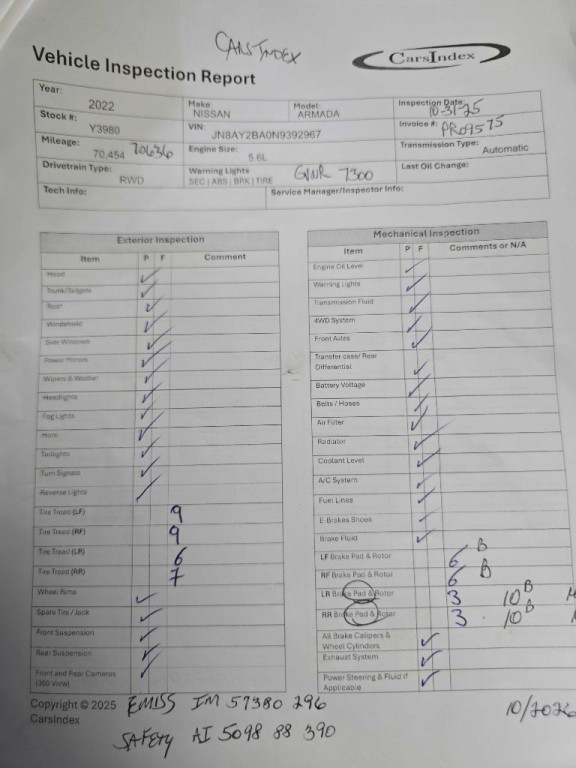 CARSINDEX
CarsIndex
Vehicle Inspection Report
Year: 2022 Make: NISSAN Model: ARMADA Inspection Date: 10-31-25
Stock #: Y3980 VIN: JN8AY2BA0N9392967 Invoice #: PRO9575
Mileage: 70,454 70636 Engine Size: 5.6L Transmission Type: Automatic
Drivetrain Type: RWD Warning Lights SEC | ABS | BRK | TIRE GVWR 7300 Last Oil Change:
Tech Info: Service Manager/Inspector Info:
Exterior Inspection
Item P F Comment
Hood
Trunk/Tailgate
Roof
Windshield
Side Windows
Power Mirrors
Wipers & Washer
Headlights
Fog Lights
Horn
Taillights
Turn Signals
Reverse Lights
Tire Tread (LF) 9
Tire Tread (RF) 9
Tire Tread (LR) 6
Tire Tread (RR) 7
Wheel Rims
Spare Tire / Jack
Front Suspension
Rear Suspension
Front and Rear Cameras
(360 View)
Mechanical Inspection
Item P F Comments or N/A
Engine Oil Level
Warning Lights
Transmission Fluid
4WD System
Front Axles
Transfer case/ Rear
Differential
Battery Voltage
Belts / Hoses
Air Filter
Radiator
Coolant Level
A/C System
Fuel Lines
E-Brakes Shoes
Brake Fluid
LF Brake Pad & Rotor 6 B
RF Brake Pad & Rotor 6 B
LR Brake Pad & Rotor 3 10 B
RR Brake Pad & Rotor 3 10 B
All Brake Calipers &
Wheel Cylinders
Exhaust System
Power Steering & Fluid if
Applicable
Copyright © 2025
CarsIndex
EMISS IM 57380 296
SAFETY AI 5098 88 390
10/2026